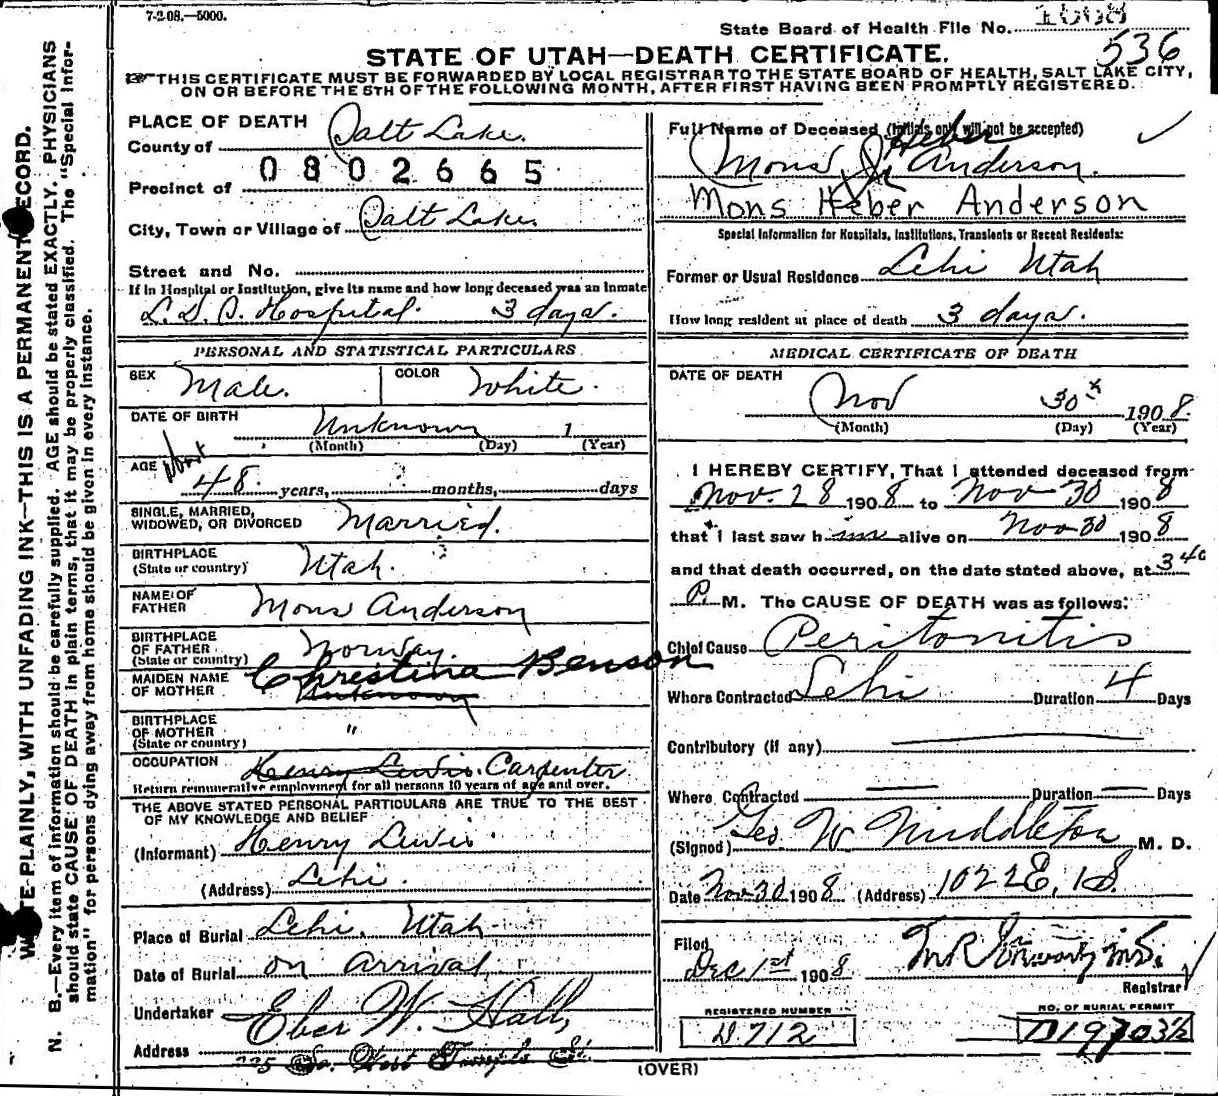 7-2-08.—5000.
State Board of Health File No. 1608
536
STATE OF UTAH—DEATH CERTIFICATE.
THIS CERTIFICATE MUST BE FORWARDED BY LOCAL REGISTRAR TO THE STATE BOARD OF HEALTH, SALT LAKE CITY,
ON OR BEFORE THE 5TH OF THE FOLLOWING MONTH, AFTER FIRST HAVING BEEN PROMPTLY REGISTERED.
PLACE OF DEATH
County of Salt Lake.
0802665
Precinct of
City, Town or Village of Salt Lake
Street and No.
If in Hospital or Institution, give its name and how long deceased was an inmate
L. D. S. Hospital. 3 days.
PERSONAL AND STATISTICAL PARTICULARS
SEX Male. COLOR White.
DATE OF BIRTH Unknown 1
(Month) (Day) (Year)
AGE about 48 years, months, days
SINGLE, MARRIED,
WIDOWED, OR DIVORCED Married.
BIRTHPLACE
(State or country) Utah.
NAME OF
FATHER Mons Anderson
BIRTHPLACE
OF FATHER
(State or country) Norway.
MAIDEN NAME
OF MOTHER Christina Benson
Unknown
BIRTHPLACE
OF MOTHER
(State or country) "
OCCUPATION Henry Lewis. Carpenter
Return remunerative employment for all persons 10 years of age and over.
THE ABOVE STATED PERSONAL PARTICULARS ARE TRUE TO THE BEST
OF MY KNOWLEDGE AND BELIEF
(Informant) Henry Lewis
(Address) Lehi.
Place of Burial Lehi, Utah
Date of Burial on arrival
Undertaker Eber W. Hall,
Address So. West Temple St.
Full Name of Deceased (Initials only will not be accepted)
Heber
Mons Anderson.
Mons Heber Anderson
Special Information for Hospitals, Institutions, Transients or Recent Residents:
Former or Usual Residence Lehi Utah
How long resident at place of death 3 days.
MEDICAL CERTIFICATE OF DEATH
DATE OF DEATH
Nov 30th 1908.
(Month) (Day) (Year)
I HEREBY CERTIFY, That I attended deceased from
Nov. 28 1908 to Nov 30 1908
that I last saw him alive on Nov 30 1908
and that death occurred, on the date stated above, at 3 40
P. M. The CAUSE OF DEATH was as follows:
Chief Cause Peritonitis
Where Contracted Lehi Duration 4 Days
Contributory (if any)
Where Contracted — Duration — Days
(Signed) Geo. W. Middleton M. D.
Date Nov 30 1908 (Address) 1022 E. 1 S.
Filed
Dec 1st 1908
Registrar
REGISTERED NUMBER
D.712
NO. OF BURIAL PERMIT
(OVER)
WRITE PLAINLY, WITH UNFADING INK—THIS IS A PERMANENT RECORD.
N. B.—Every item of information should be carefully supplied. AGE should be stated EXACTLY. PHYSICIANS
should state CAUSE OF DEATH in plain terms, that it may be properly classified. The "Special Infor-
mation" for persons dying away from home should be given in every instance.